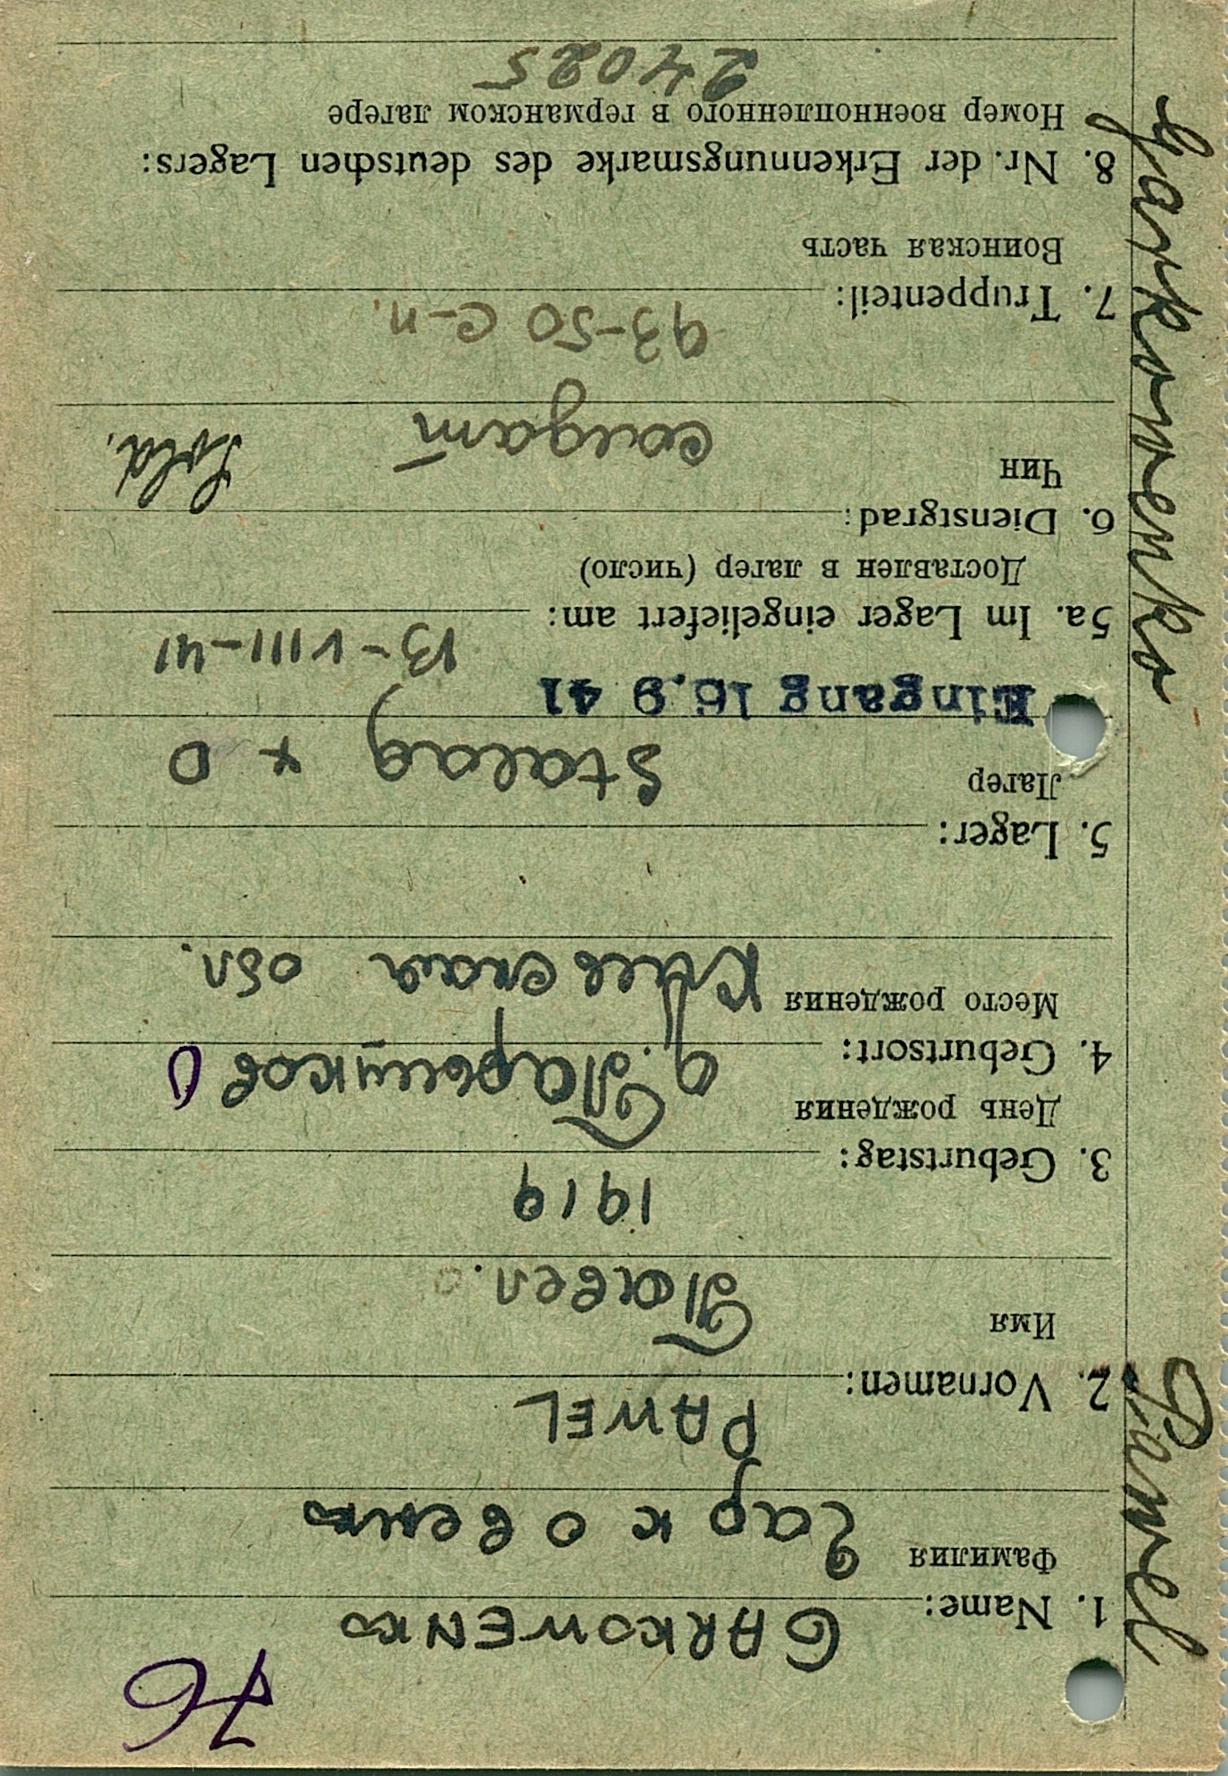 76
Pawel Garkowenko
GARKOWENKO
1. Name:
Фамилия Гарковенко
PAWEL
2. Vornamen:
Имя Павел.
1919
3. Geburtstag:
День рождения
4. Geburtsort:
Место рождения Киевская обл.
5. Lager:
Лагерь Stalag X D
Eingang 16.9 41
13-VIII-41
5a. Im Lager eingeliefert am:
Доставлен в лагер (число)
6. Dienstgrad:
Чин солдат Sold.
93-50 с-п.
7. Truppenteil:
Воинская часть
8. Nr. der Erkennungsmarke des deutschen Lagers:
Номер военнопленного в германском лагере
24025